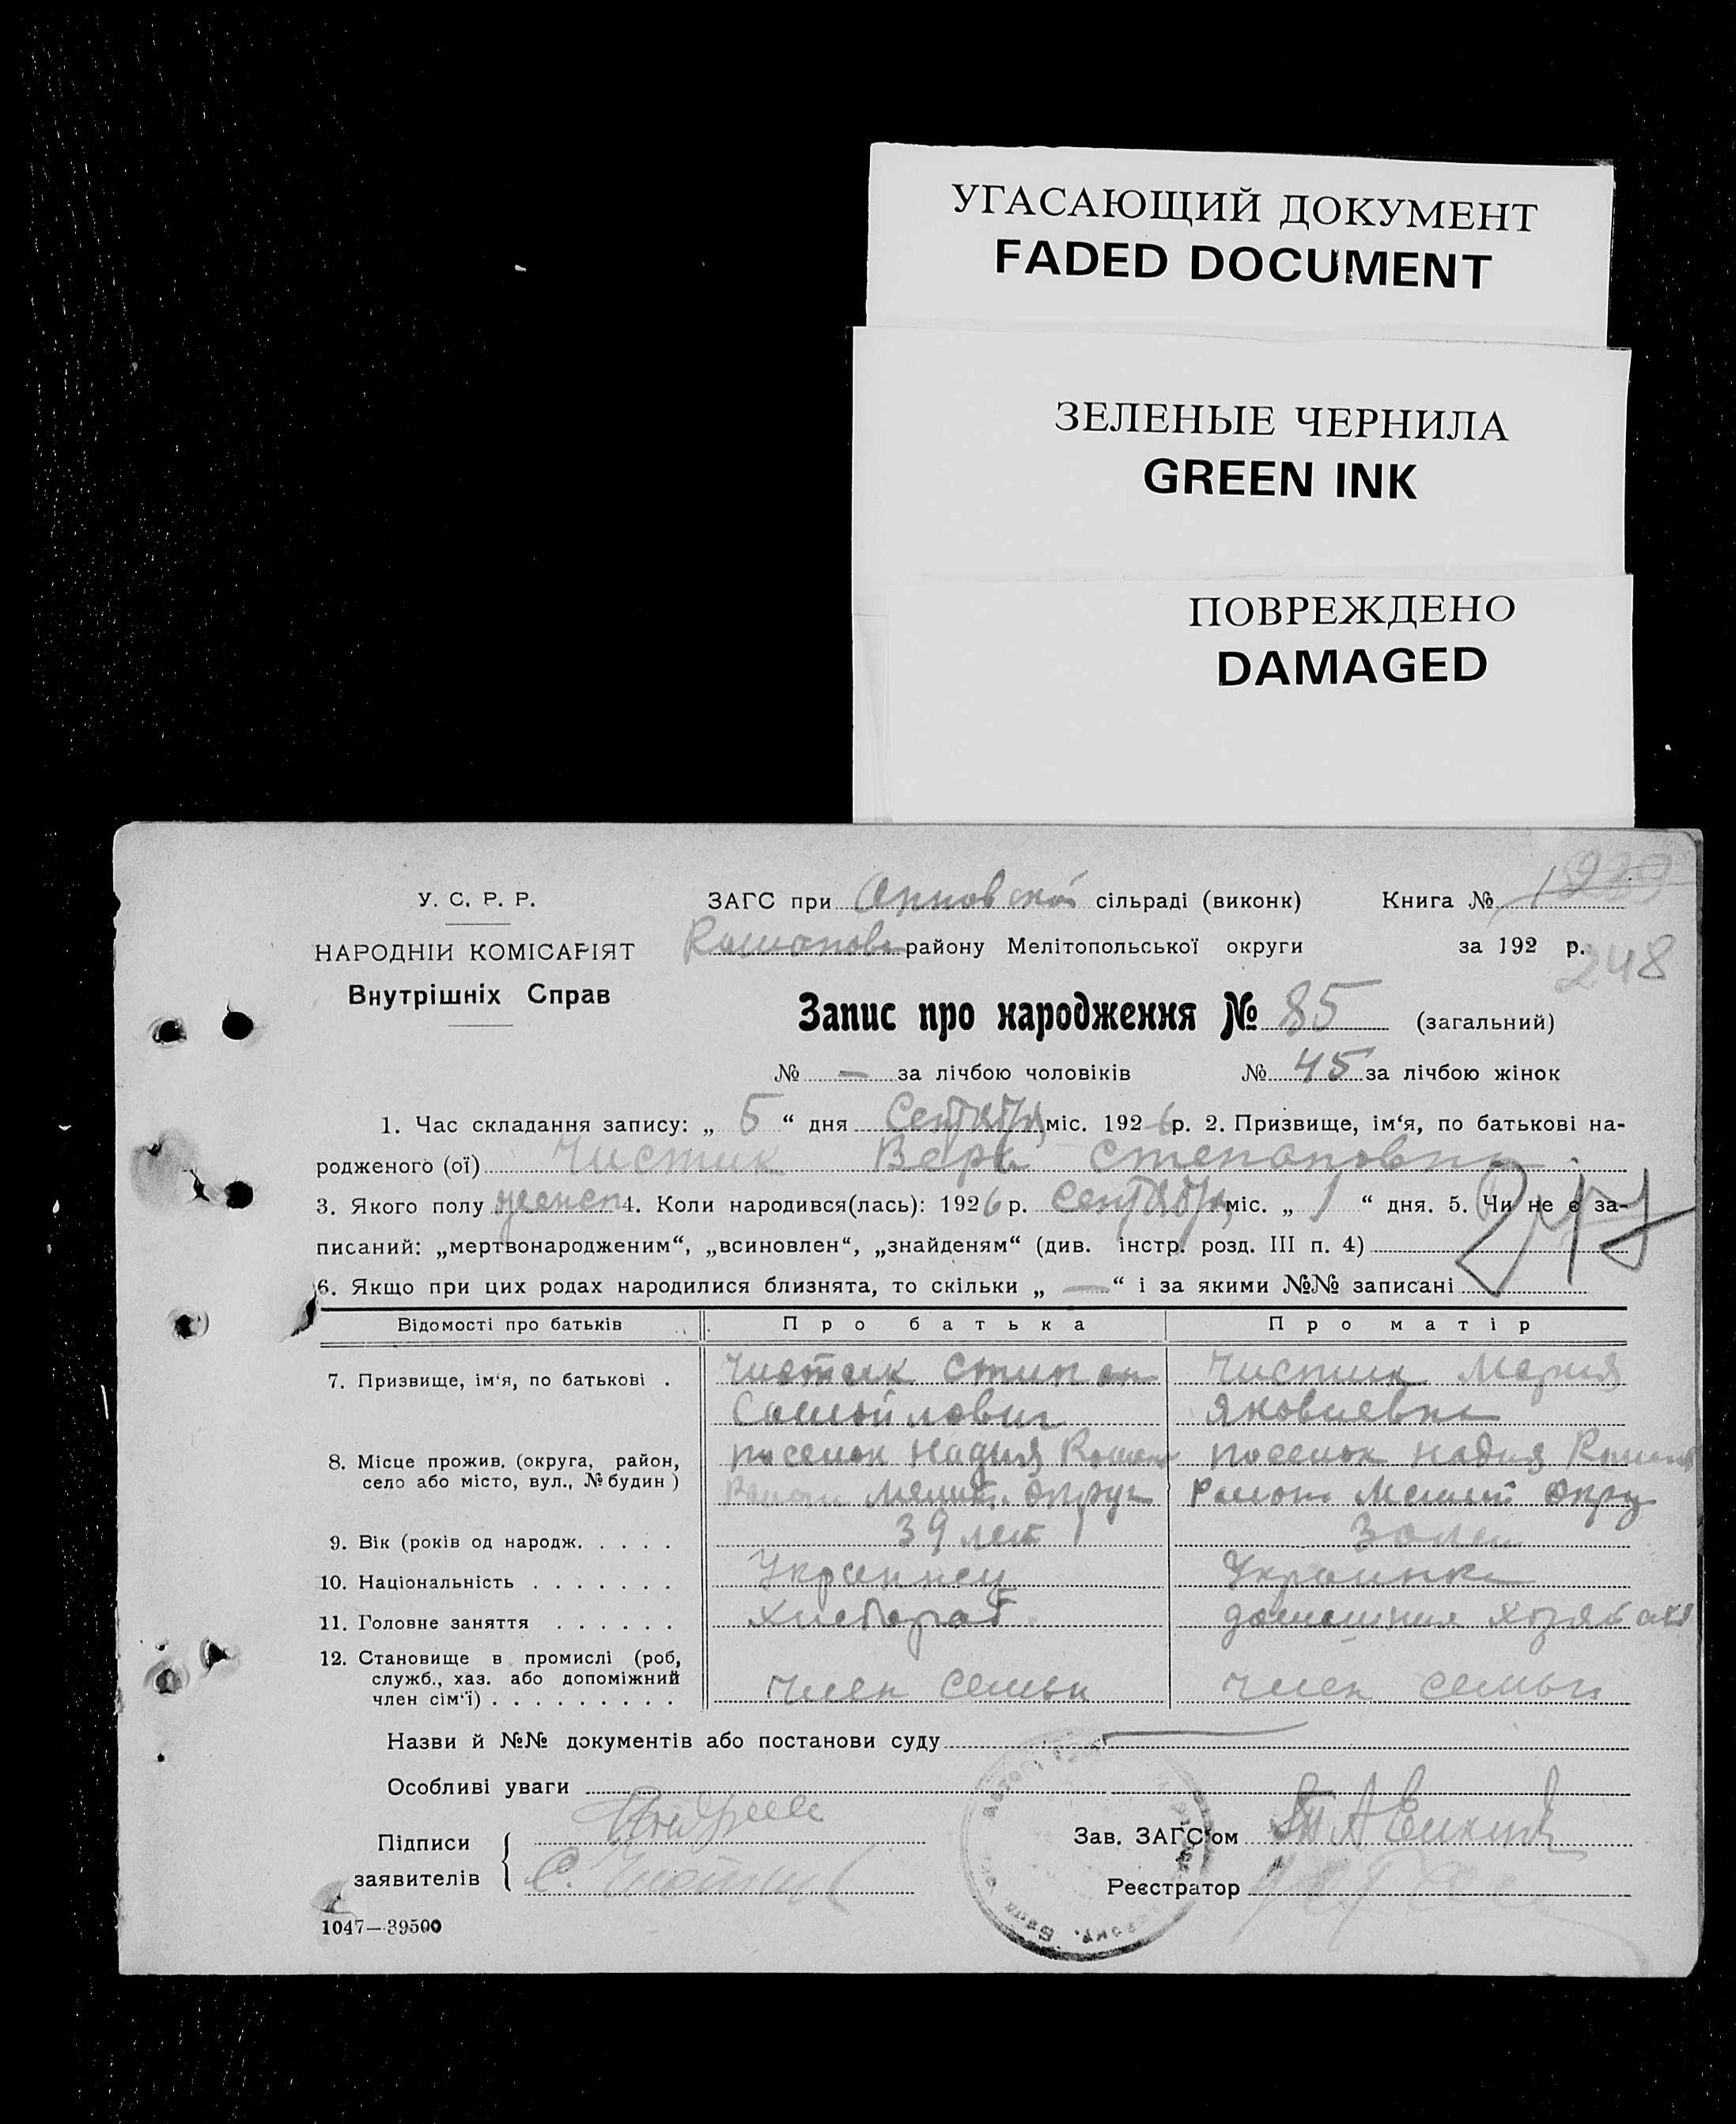 УГАСАЮЩИЙ ДОКУМЕНТ
FADED DOCUMENT
ЗЕЛЕНЫЕ ЧЕРНИЛА
GREEN INK
ПОВРЕЖДЕНО
DAMAGED
У. С. Р. Р.
НАРОДНІЙ КОМІСАРІЯТ
Внутрішніх Справ
ЗАГС при сільраді (виконк) Книга №
району Мелітопольської округи за 192 р.
248
Запис про народження № 85 (загальний)
№ — за лічбою чоловіків № 45 за лічбою жінок
1. Час складання запису: „ 5 “ дня Сентября міс. 1926 р. 2. Призвище, ім‘я, по батькові на-
родженого (ої) Чистик Вера Степановна
3. Якого полу женск 4. Коли народився(лась): 1926 р. Сентября міс. „ 1 “ дня. 5. Чи не є за-
писаний: „мертвонародженим“, „всиновлен“, „знайденям“ (див. інстр. розд. III п. 4)
247
6. Якщо при цих родах народилися близнята, то скільки „ — “ і за якими №№ записані
Відомості про батьків Про батька Про матір
7. Призвище, ім‘я, по батькові . Чистик Стипан Чистик Мария
Самойлович Яковлевна
8. Місце прожив. (округа, район, поселок Надия поселок Надия
село або місто, вул., № будин ) Мелит. Округ Мелит Окру
9. Вік (років од народж. . . . . 39 лет
10. Національність . . . . . . . Украинец Украинка
11. Головне заняття . . . . . . Хлебороб домашния
12. Становище в промислі (роб,
служб., хаз. або допоміжний
член сім‘ї) . . . . . . . . . член семьи член семьи
Назви й №№ документів або постанови суду
Особливі уваги
Підписи
заявителів С. Чистик
Зав. ЗАГС‘ом
Реєстратор
1047—39500